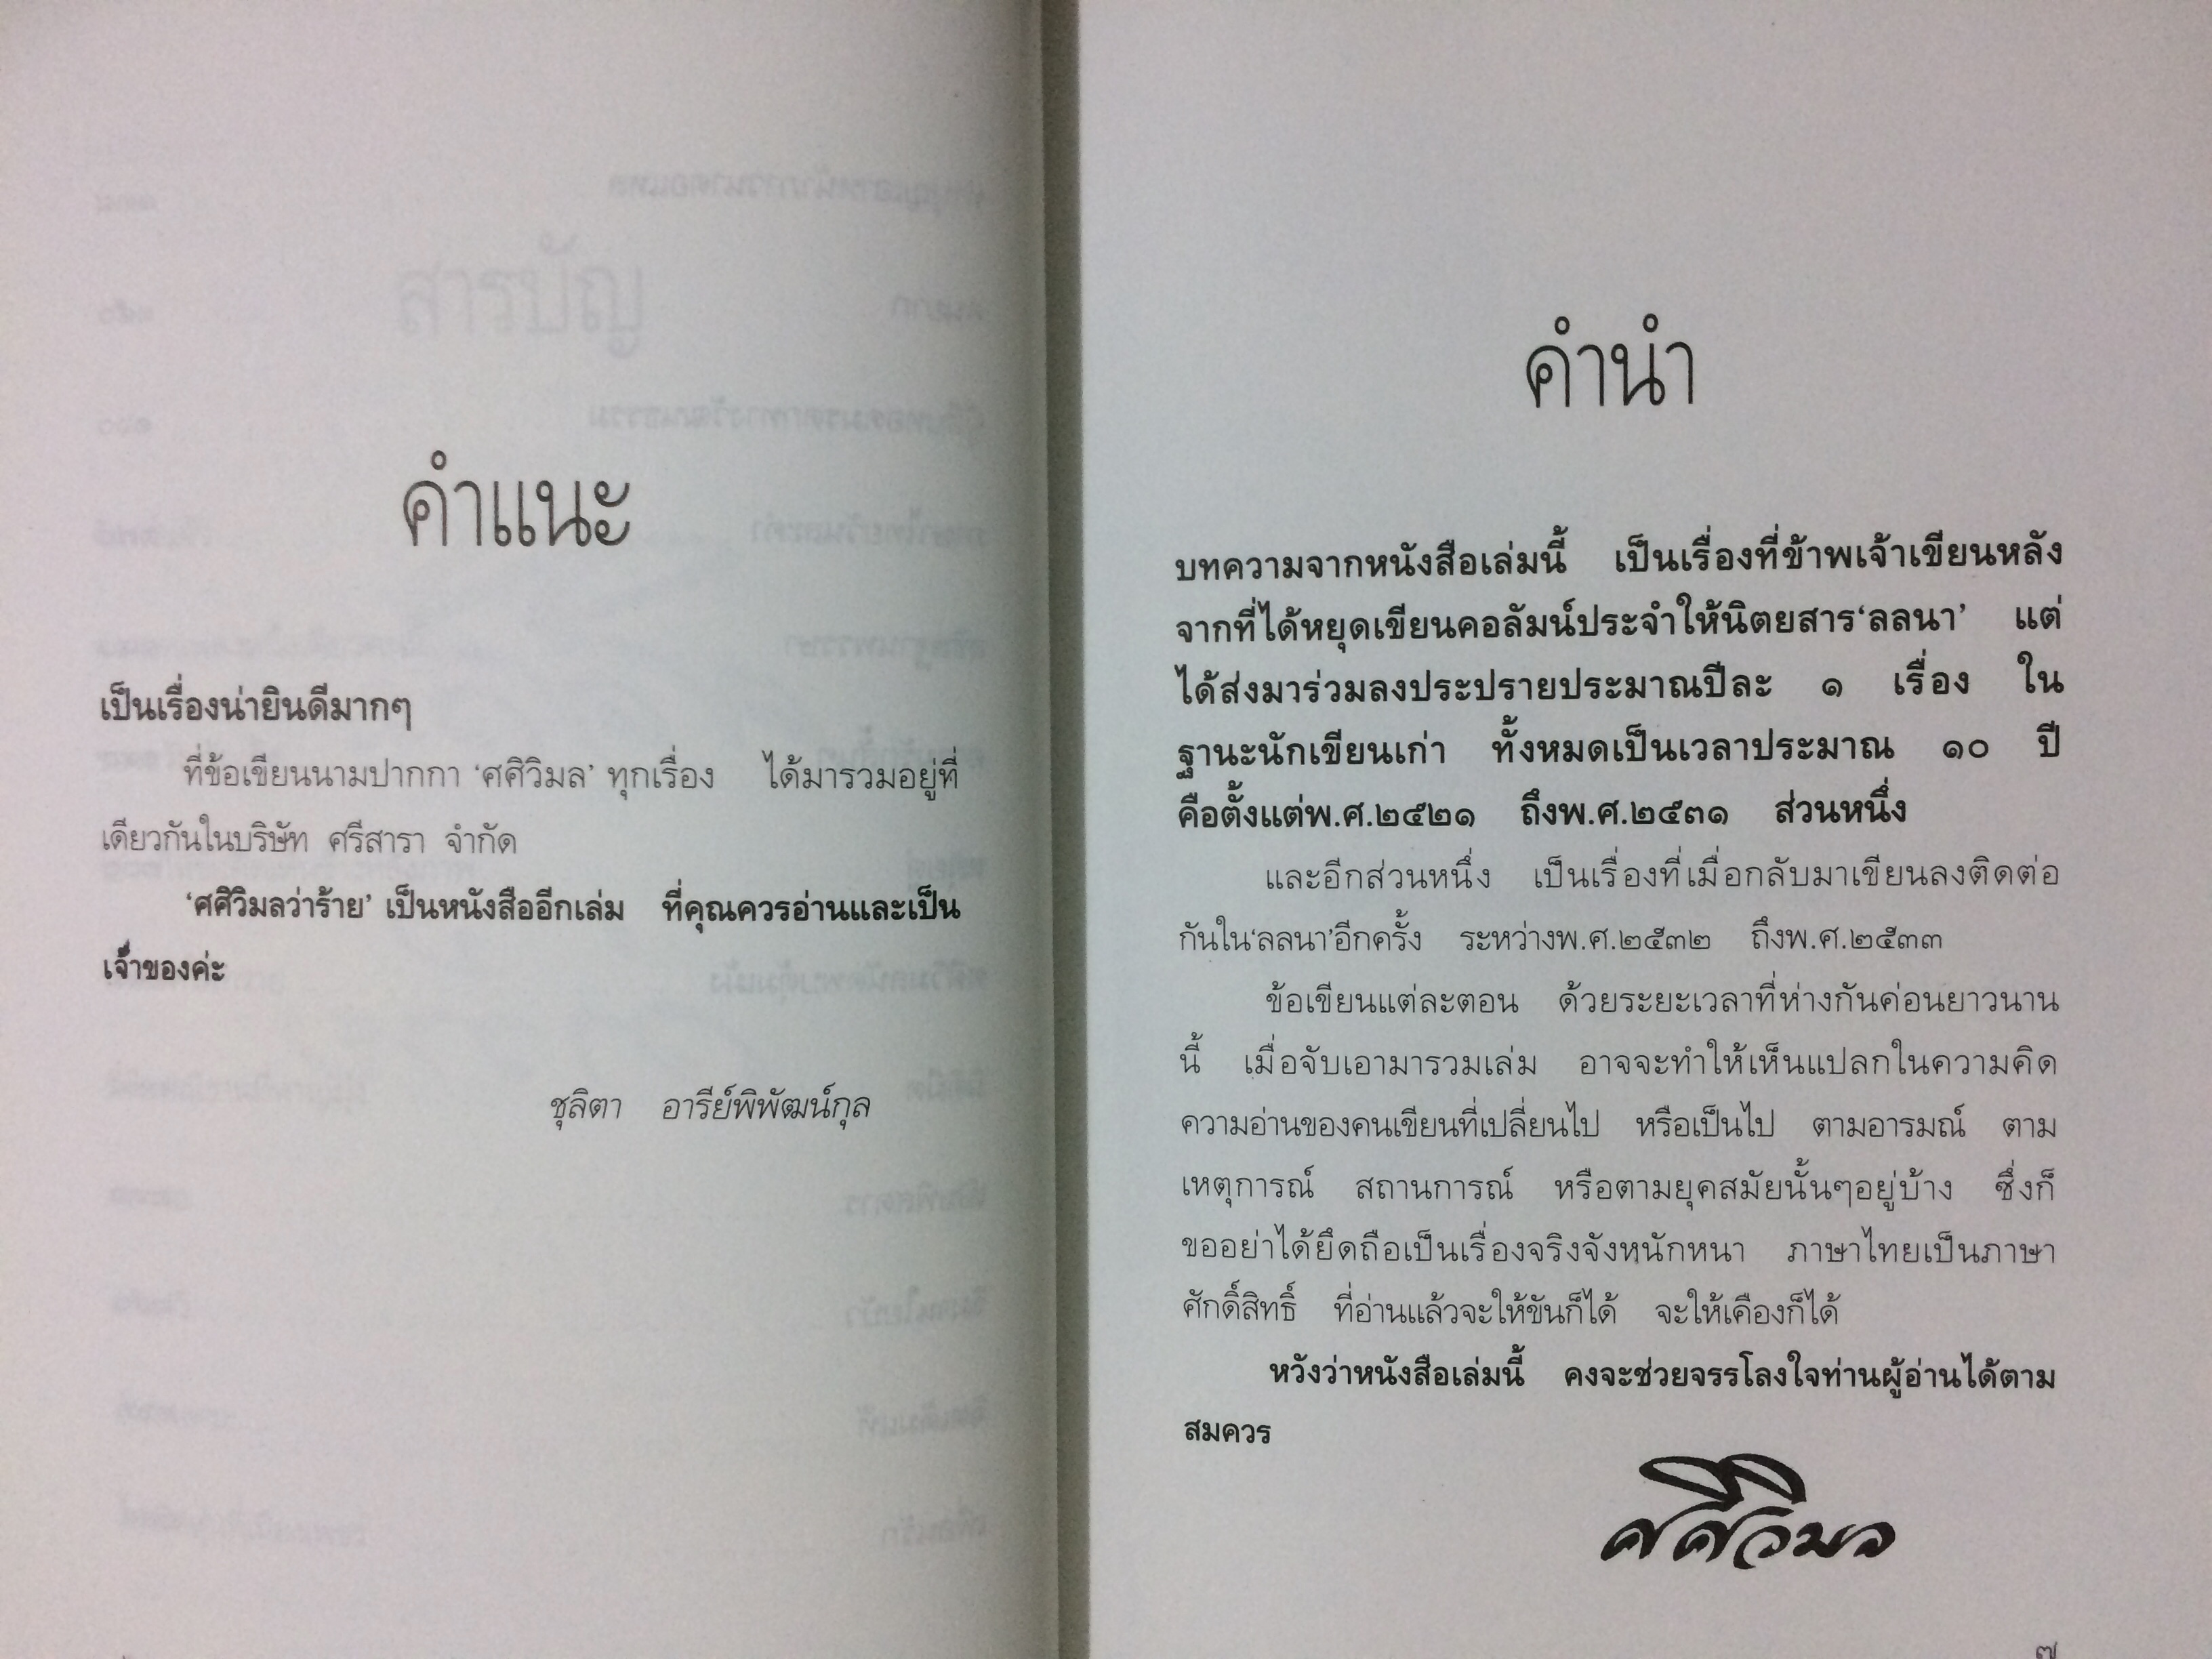 คำแนะ
เป็นเรื่องน่ายินดีมากๆ
ที่ข้อเขียนนามปากกา ‘ศศิวิมล’ ทุกเรื่อง ได้มารวมอยู่ที่
เดียวกันในบริษัท ศรีสารา จำกัด
‘ศศิวิมลว่าร้าย’ เป็นหนังสืออีกเล่ม ที่คุณควรอ่านและเป็น
เจ้าของค่ะ
ชุลิตา อารีย์พิพัฒน์กุล
สารบัญ
คำนำ
บทความจากหนังสือเล่มนี้ เป็นเรื่องที่ข้าพเจ้าเขียนหลัง
จากที่ได้หยุดเขียนคอลัมน์ประจำให้นิตยสาร‘ลลนา’ แต่
ได้ส่งมาร่วมลงประปรายประมาณปีละ ๑ เรื่อง ใน
ฐานะนักเขียนเก่า ทั้งหมดเป็นเวลาประมาณ ๑๐ ปี
คือตั้งแต่พ.ศ.๒๕๒๑ ถึงพ.ศ.๒๕๓๑ ส่วนหนึ่ง
และอีกส่วนหนึ่ง เป็นเรื่องที่เมื่อกลับมาเขียนลงติดต่อ
กันใน‘ลลนา’อีกครั้ง ระหว่างพ.ศ.๒๕๓๒ ถึงพ.ศ.๒๕๓๓
ข้อเขียนแต่ละตอน ด้วยระยะเวลาที่ห่างกันค่อนยาวนาน
นี้ เมื่อจับเอามารวมเล่ม อาจจะทำให้เห็นแปลกในความคิด
ความอ่านของคนเขียนที่เปลี่ยนไป หรือเป็นไป ตามอารมณ์ ตาม
เหตุการณ์ สถานการณ์ หรือตามยุคสมัยนั้นๆอยู่บ้าง ซึ่งก็
ขออย่าได้ยึดถือเป็นเรื่องจริงจังหนักหนา ภาษาไทยเป็นภาษา
ศักดิ์สิทธิ์ ที่อ่านแล้วจะให้ขันก็ได้ จะให้เคืองก็ได้
หวังว่าหนังสือเล่มนี้ คงจะช่วยจรรโลงใจท่านผู้อ่านได้ตาม
สมควร
ศศิวิมล
๗